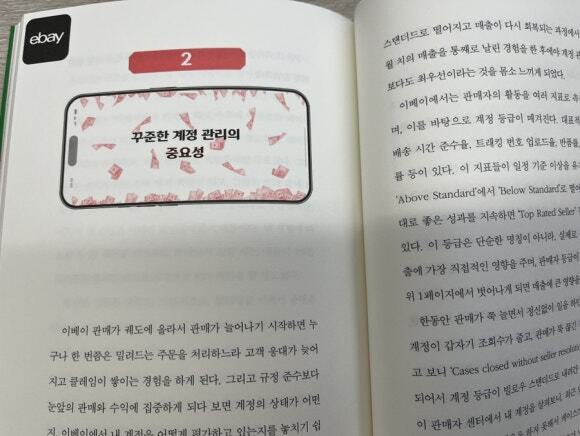 ebay
2
꾸준한 계정 관리의
중요성
이베이 판매가 궤도에 올라서 판매가 늘어나기 시작하면 누
구나 한 번쯤은 밀려드는 주문을 처리하느라 고객 응대가 늦어
지고 클레임이 쌓이는 경험을 하게 된다. 그리고 규정 준수보다
눈앞의 판매와 수익에 집중하게 되다 보면 계정의 상태가 어떤
지, 이베이에서 내 계정을 어떻게 평가하고 있는지를 놓치기 쉽
스탠더드로 떨어지고 매출이 다시 회복되는 과정에서
월 치의 매출을 통째로 날린 경험을 한 후에야 계정 관
보다도 최우선이라는 것을 몸소 느끼게 되었다.
이베이에서는 판매자의 활동을 여러 지표로 추
며, 이를 바탕으로 계정 등급이 매겨진다. 대표적
배송 시간 준수율, 트래킹 번호 업로드율, 반품률,
률 등이 있다. 이 지표들이 일정 기준 이상을 유
'Above Standard'에서 'Below Standard'로 떨어
대로 좋은 성과를 지속하면 'Top Rated Seller'
있다. 이 등급은 단순한 명칭이 아니라, 실제로
출에 가장 직접적인 영향을 주며, 판매자 등급이
위 1페이지에서 벗어나게 되면 매출에 큰 영향을
한동안 판매가 쭉 늘면서 정신없이 일을 하
계정이 갑자기 조회수가 줄고, 판매가 뚝 끊긴
고 보니 'Cases closed without seller resolu
되어서 계정 등급이 빌로우 스탠더드로 내려간
이 판매자 센터에서 내 계정을 살펴보니, 최근